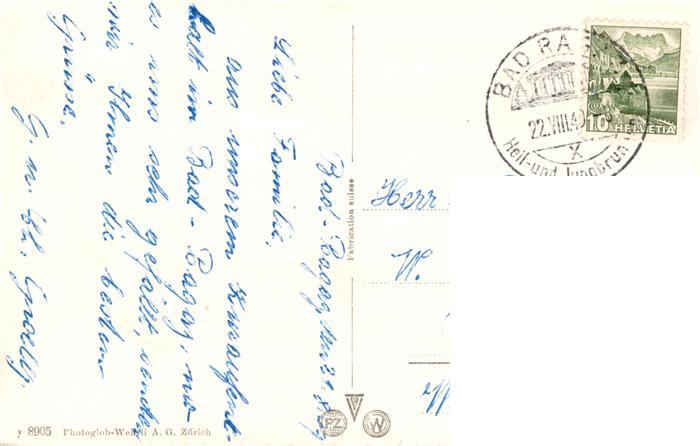 Bad-Ragaz, den 21. Aug
Liebe Familie,
Aus unserem Kuraufent-
halt in Bad-Ragaz, wo
es uns sehr gefällt, senden
wir Ihnen die besten
Grüsse.
Fabrication suisse
BAD RAGAZ
22.VIII.40
X
Heil-und Jungbrun
10 HELVETIA
Herr
W.
PZ
W
y 8905 Photoglob-Wehrli A. G. Zürich